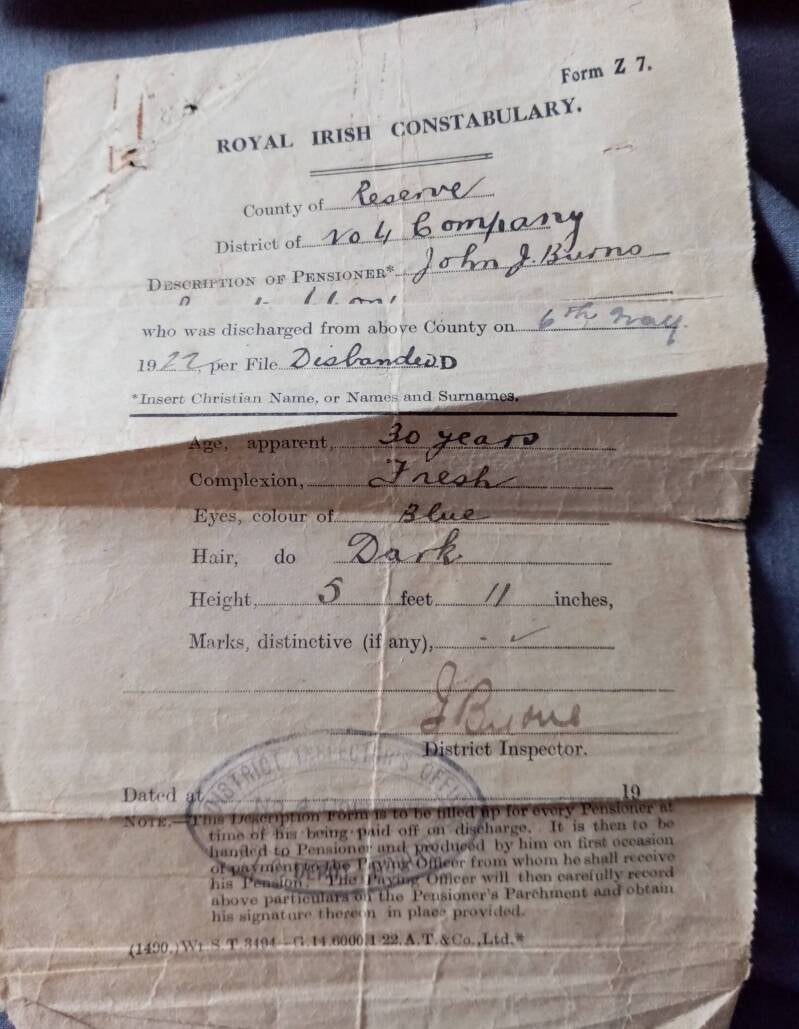 Form Z 7.
ROYAL IRISH CONSTABULARY.
County of Reserve
District of No 4 Company
DESCRIPTION OF PENSIONER* John J. Burns
who was discharged from above County on 6th May
1922, per File Disbanded D
*Insert Christian Name, or Names and Surnames.
Age, apparent, 30 years
Complexion, Fresh
Eyes, colour of Blue
Hair, do Dark
Height, 5 feet 11 inches,
Marks, distinctive (if any), - ✓
J Byrne
District Inspector.
DISTRICT INSPECTOR'S OFFICE
Dated at 19
NOTE.—This Description Form is to be filled up for every Pensioner at
time of his being paid off on discharge. It is then to be
handed to Pensioner and produced by him on first occasion
of payment to the Paying Officer from whom he shall receive
his Pension. The Paying Officer will then carefully record
above particulars on the Pensioner's Parchment and obtain
his signature thereon in place provided.
(1490.) Wt. S.T. 3404—G.14. 6000. 1-22. A.T.&Co., Ltd.*